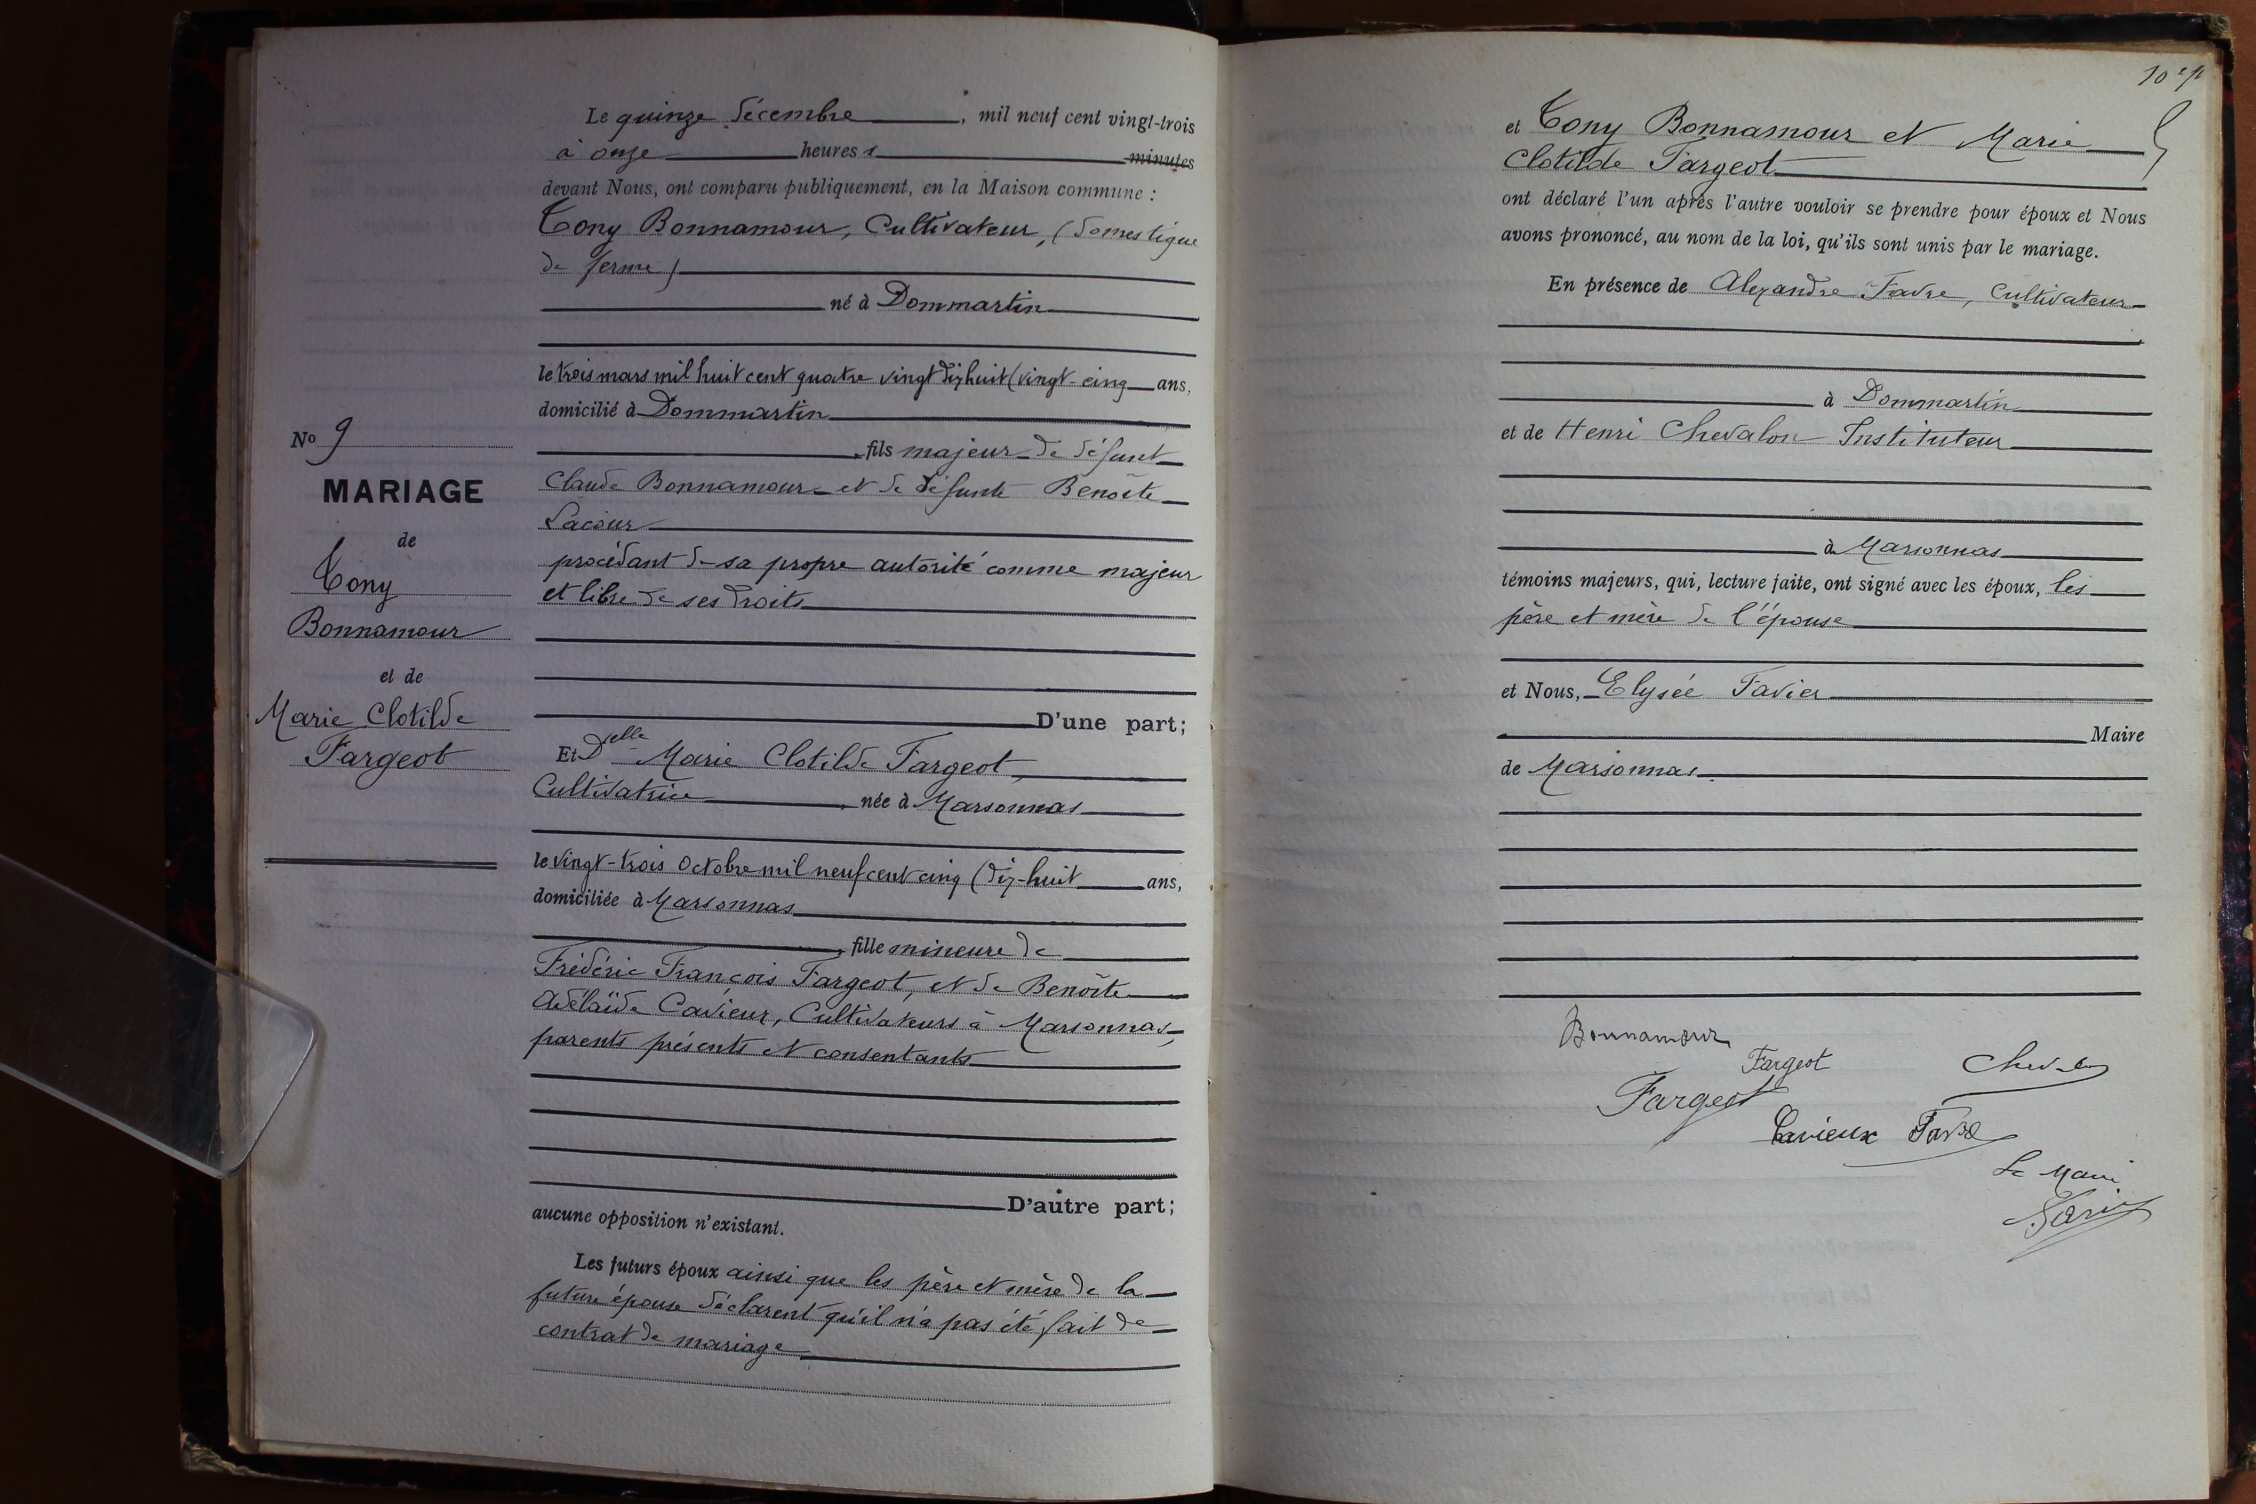 Le quinze décembre, mil neuf cent vingt-trois
à onze heures minutes
devant Nous, ont comparu publiquement, en la Maison commune :
Tony Bonnamour, Cultivateur, (domestique
de ferme)
né à Dommartin
le trois mars mil huit cent quatre vingt dix huit (vingt-cinq ans,
domicilié à Dommartin
fils majeur de défunt
Claude Bonnamour et de défunte Benoîte
Lacour
procédant de sa propre autorité comme majeur
et libre de ses droits
D'une part;
Et Delle Marie Clotilde Fargeot,
Cultivatrice, née à Marsonnas
le vingt-trois Octobre mil neuf cent cinq (dix-huit ans,
domiciliée à Marsonnas
, fille mineure de
Frédéric François Fargeot, et de Benoîte
Adélaïde Cavieux, Cultivateurs à Marsonnas,
parents présents et consentants
D'autre part;
aucune opposition n'existant.
Les futurs époux ainsi que les père et mère de la
future épouse déclarent qu'il n'a pas été fait de
contrat de mariage
No 9
MARIAGE
de
Tony
Bonnamour
et de
Marie Clotilde
Fargeot
et Tony Bonnamour et Marie
Clotilde Fargeot
ont déclaré l'un après l'autre vouloir se prendre pour époux et Nous
avons prononcé, au nom de la loi, qu'ils sont unis par le mariage.
En présence de Alexandre Favre, Cultivateur
à Dommartin
et de Henri Chevalon Instituteur
à Marsonnas
témoins majeurs, qui, lecture faite, ont signé avec les époux, les
père et mère de l'épouse
et Nous, Elysée Favier
Maire
de Marsonnas.
Bonnamour
Fargeot
Chevalon
Fargeot
Cavieux Favre
Le Maire
Favier